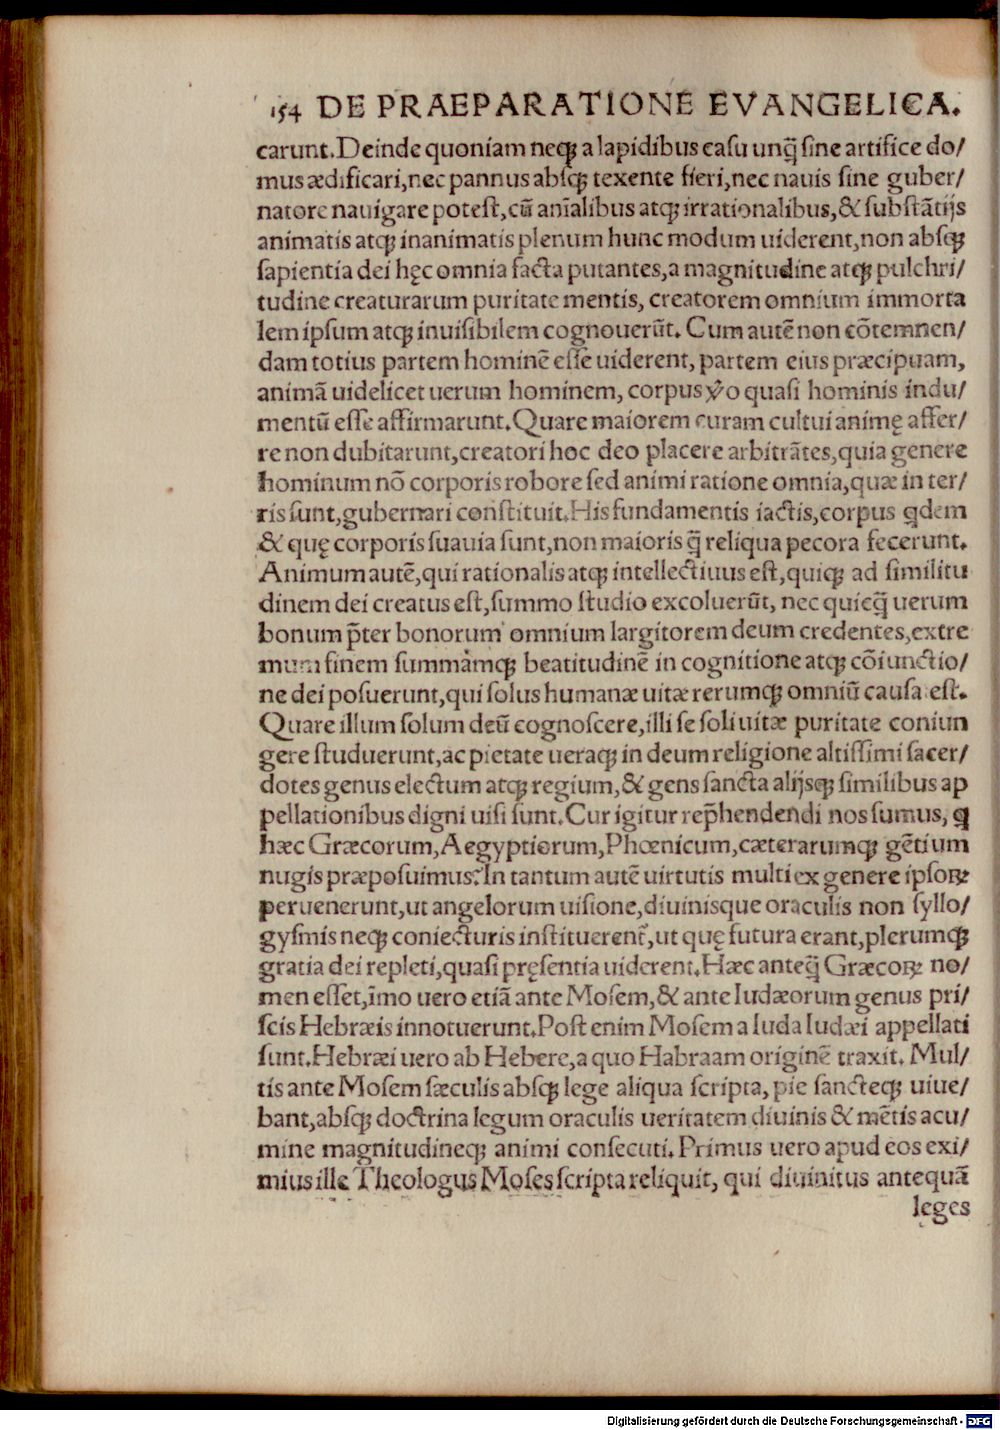 154 DE PRAEPARATIONE EVANGELICA.
carunt.Deinde quoniam neqꝫ a lapidibus casu unq̃ sine artifice do/
mus ædificari,nec pannus absqꝫ texente fieri,nec nauis sine guber/
natore nauigare potest,cũ aīalibus atqꝫ irrationalibus,& substãtijs
animatis atqꝫ inanimatis plenum hunc modum uiderent,non absqꝫ
sapientia dei hęc omnia facta putantes,a magnitudine atqꝫ pulchri/
tudine creaturarum puritate mentis, creatorem omnium immorta
lem ipsum atqꝫ inuisibilem cognouerũt. Cum autẽ non cõtemnen/
dam totius partem hominẽ esse uiderent, partem eius præcipuam,
animã uidelicet uerum hominem, corpus ꝟo quasi hominis indu/
mentũ esse affirmarunt.Quare maiorem curam cultui animę affer/
re non dubitarunt,creatori hoc deo placere arbitrãtes,quia genere
hominum nõ corporis robore sed animi ratione omnia,quæ in ter/
ris sunt,gubernari constituit.His fundamentis iactis,corpus qdem
& quę corporis suauia sunt,non maioris q̃ reliqua pecora fecerunt.
Animum autẽ,qui rationalis atqꝫ intellectiuus est,quiqꝫ ad similitu
dinem dei creatus est,summo studio excoluerũt, nec quicq̃ uerum
bonum p̃ter bonorum omnium largitorem deum credentes,extre
mum finem summámqꝫ beatitudinẽ in cognitione atqꝫ cõiunctio/
ne dei posuerunt,qui solus humanæ uitæ rerumqꝫ omniũ causa est.
Quare illum solum deũ cognoscere,illi se soli uitæ puritate coniun
gere studuerunt,ac pietate ueraqꝫ in deum religione altissimi sacer/
dotes genus electum atqꝫ regium,& gens sancta alijsqꝫ similibus ap
pellationibus digni uisi sunt.Cur igitur rep̃hendendi nos sumus, ꝗ
hæc Græcorum,Aegyptiorum,Phœnicum,cæterarumqꝫ gẽtium
nugis præposuimus?In tantum autẽ uirtutis multi ex genere ipsoꝝ
peruenerunt,ut angelorum uisione,diuinisque oraculis non syllo/
gysmis neqꝫ coniecturis instituerent̃,ut quę futura erant,plerumqꝫ
gratia dei repleti,quasi pręsentia uiderent.Hæc anteq̃ Græcoꝝ no/
men esset,ĩmo uero etiã ante Mosem,& ante Iudæorum genus pri/
scis Hebræis innotuerunt.Post enim Mosem a Iuda Iudæi appellati
sunt.Hebræi uero ab Hebere,a quo Habraam originẽ traxit. Mul/
tis ante Mosem sæculis absqꝫ lege aliqua scripta, pie sancteqꝫ uiue/
bant,absqꝫ doctrina legum oraculis ueritatem diuinis & mẽtis acu/
mine magnitudineqꝫ animi consecuti.Primus uero apud eos exi/
mius ille Theologus Moses scripta reliquit, qui diuinitus antequã
leges
Digitalisierung gefördert durch die Deutsche Forschungsgemeinschaft - DFG